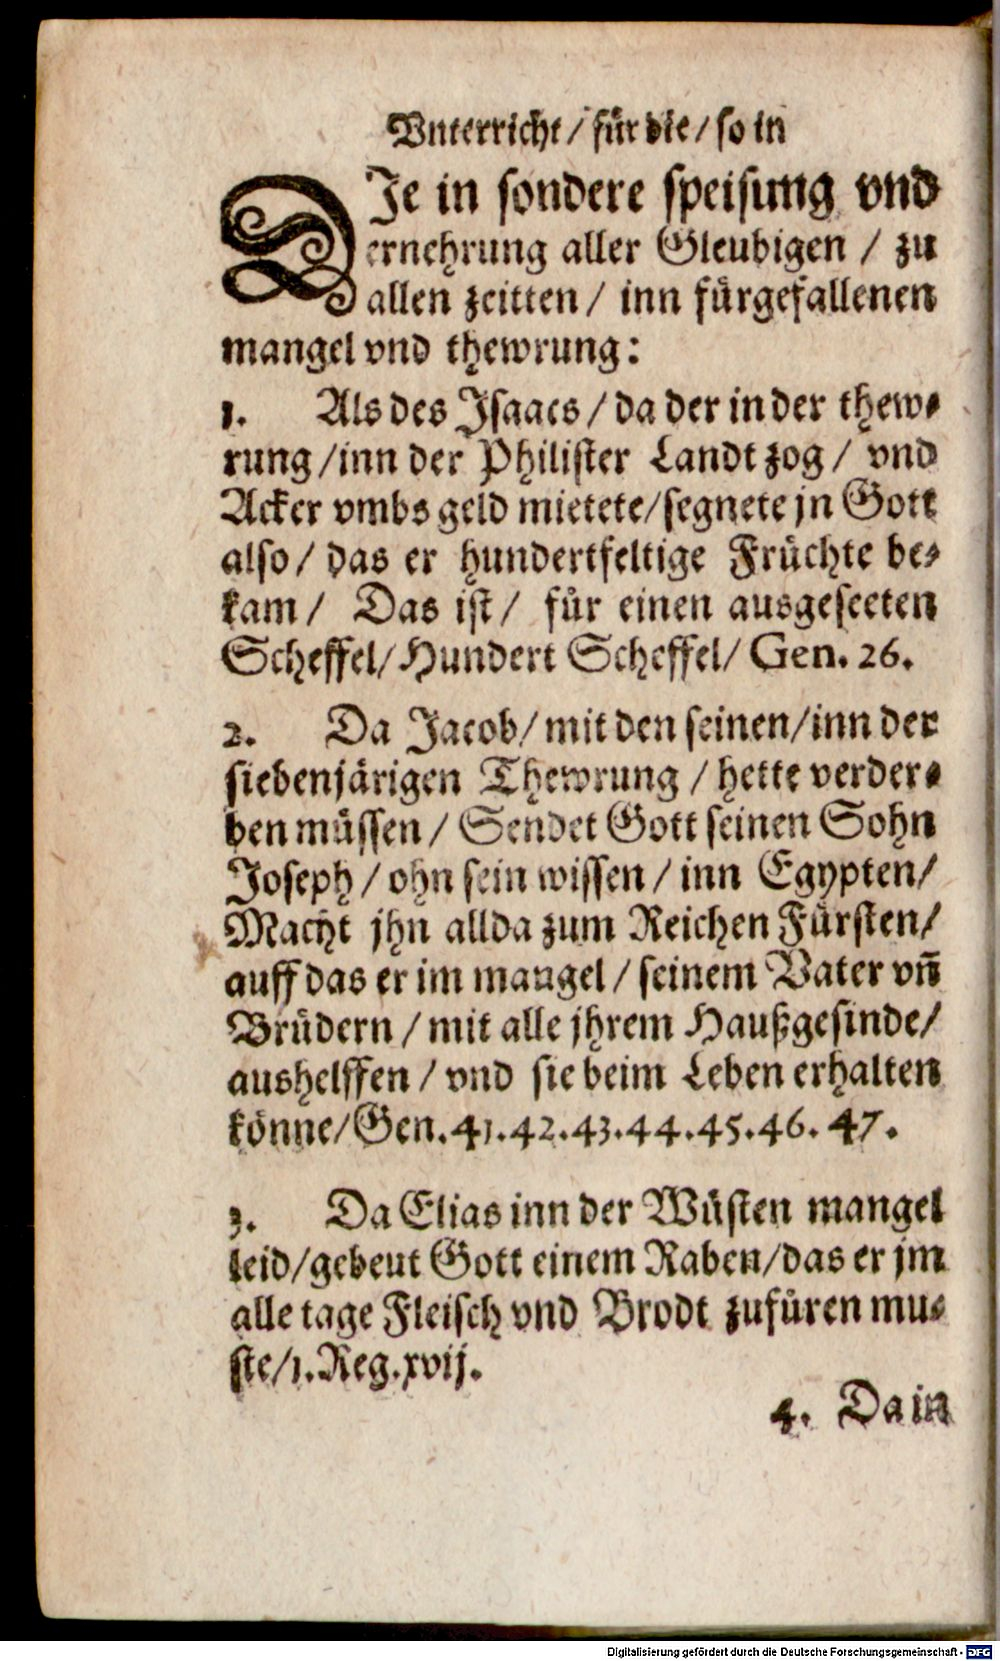 Vnterricht / für die / so in
DIe in sondere speisung vnd
ernehrung aller Gleubigen / zu
allen zeitten / inn fürgefallenen
mangel vnd thewrung:
1. Als des Isaacs / da der in der thew-
rung / inn der Philister Landt zog / vnd
Acker vmbs geld mietete / segnete jn Gott
also / das er hundertfeltige Früchte be-
kam / Das ist / für einen ausgeseeten
Scheffel / Hundert Scheffel / Gen. 26.
2. Da Jacob / mit den seinen / inn der
siebenjärigen Thewrung / hette verder-
ben müssen / Sendet Gott seinen Sohn
Joseph / ohn sein wissen / inn Egypten /
Macht jhn allda zum Reichen Fürsten /
auff das er im mangel / seinem Vater vñ
Brüdern / mit alle jhrem Haußgesinde /
aushelffen / vnd sie beim Leben erhalten
könne / Gen. 41. 42. 43. 44. 45. 46. 47.
3. Da Elias inn der Wüsten mangel
leid / gebeut Gott einem Raben / das er jm
alle tage Fleisch vnd Brodt zufüren mu-
ste / 1. Reg. xvij.
4. Da in
Digitalisierung gefördert durch die Deutsche Forschungsgemeinschaft - DFG